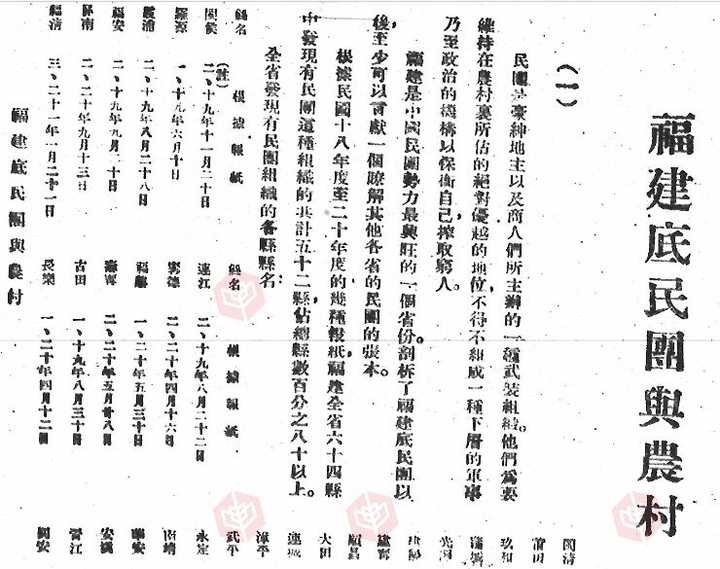 福建底民團與農村
(一)
民團是豪紳地主以及商人們所主辦的一種武裝組織。他們爲要
維持在農村裏所佔的絕對優越的地位,不得不組成一種下層的軍事
乃至政治的機構以保衛自己榨取窮人。
福建是中國民團勢力最興旺的一個省份剖析了福建底民團以
後,至少可以貢獻一個瞭解其他各省的民團的張本。
根據民國十八年度至二十年度的幾種報紙,福建全省六十四縣
中發現有民團這種組織的共計五十二縣,佔總縣數百分之八十以上。
全省發現有民團組織的各縣縣名:
縣名 (註)根據報紙 縣名 根據報紙
閩侯 二、十九年十一月二十日 連江 二、十九年八月二十二日
羅源 一、十九年六月十日 寧德 二、二十年四月十六日
霞浦 二、十九年八月二十八日 福鼎 一、二十年五月三十日
福安 二、十九年九月二十日 壽寧 二、二十年五月廿八日
屏南 二、二十年九月十三日 古田 一、十九年八月三十日
福清 三、二十一年一月二十一日 長樂 一、二十年四月十二日
福建底民團與農村
閩清
莆田
建甯
順昌
大田
連城
漳平
武平
永定
南靖
華安
安溪
晉江
同安